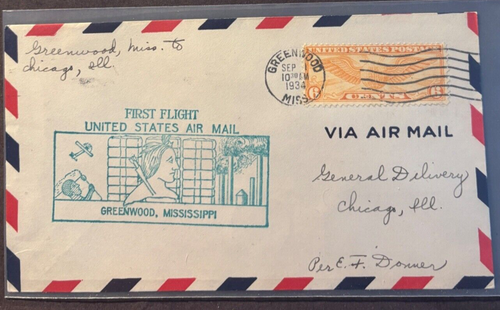 Greenwood, Miss. to
Chicago, Ill.
GREENWOOD
SEP
10 30 AM
1934
MISS.
UNITED STATES POSTAGE
6 CENTS 6
FIRST FLIGHT
UNITED STATES AIR MAIL
GREENWOOD, MISSISSIPPI
VIA AIR MAIL
General Delivery
Chicago, Ill.
Per E. F. Donner